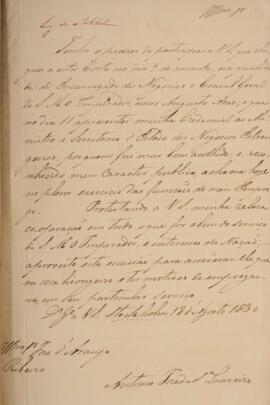 Illmo Sr
Leg. de Stokholm
Tenho o prazer de participar a V.S. que che
guei a esta Corte no dia 9 do corrente, na qualida
de de Encarregado de Negocios e Consul Geral
de S. M. O Imperador, nosso Augusto Amo, e que
no dia 11 apresentei minha Credencial ao Mi
nistro e Secretario d'Estado dos Negocios Estran
geiros, por quem fui mui bem acolhido; e, reco
nhecido meu Caracter publico, acho-me hoje
no pleno exercicio das funcções do meu Empre
go.
Protestando a V.S. minha zeloza
cooperação em tudo o que for a bem do serviço
de S. M. O Imperador, e interesses da Nação,
aproveito esta occazião para asseverar-lhe que
me sera lisongeiro ter motivos de empregar
me em seu particular serviço.
Ds Ge a V.S. Stockholm 12 d'Agosto 1830
Illmo Sr José d'Araujo
Ribeiro
Loureiro